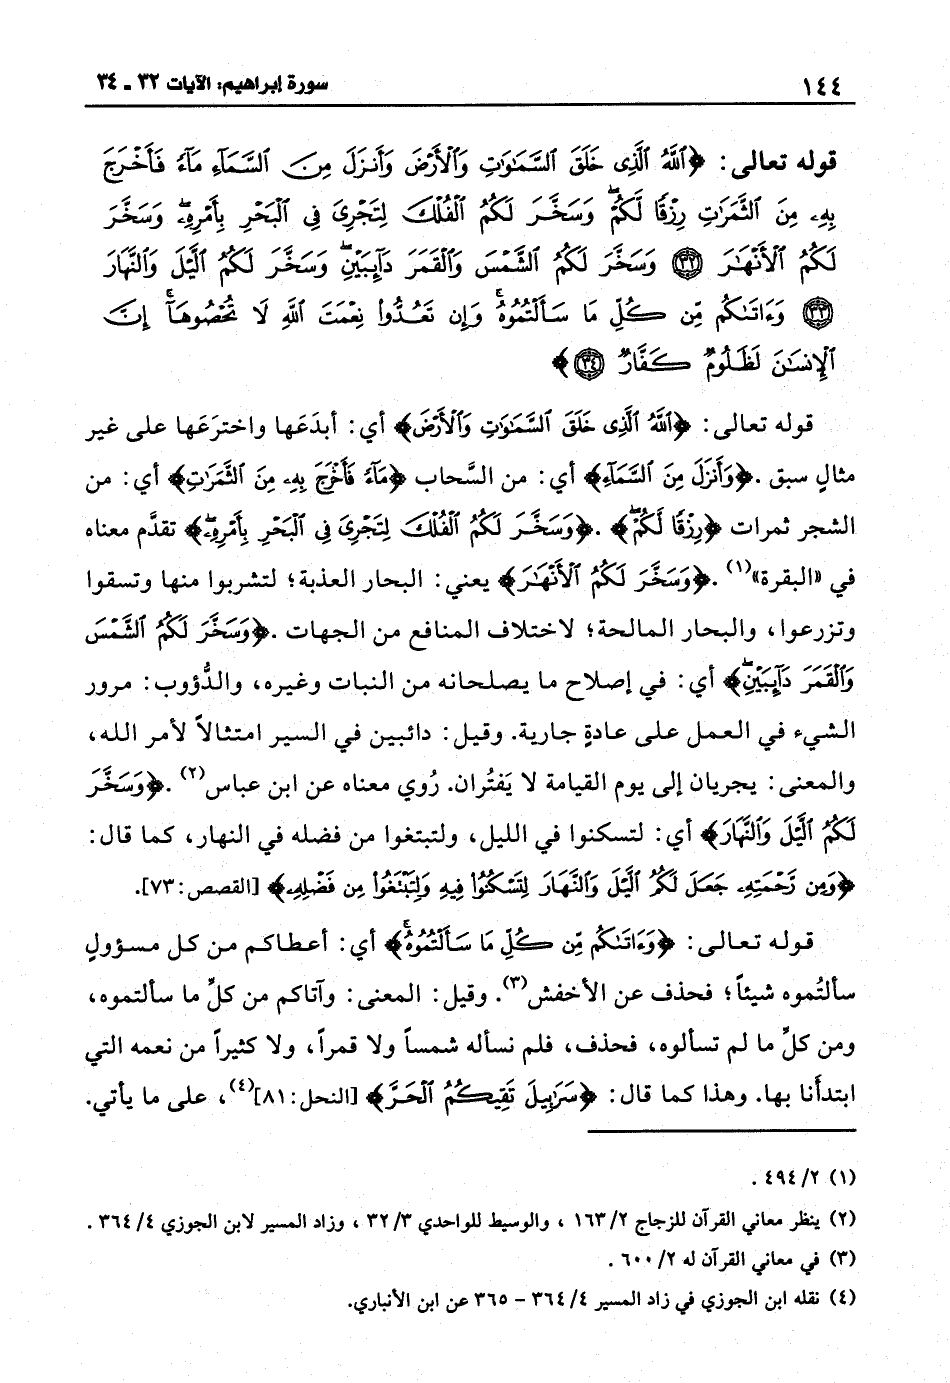 ١٤٤ سورة إبراهيم: الآيات ٣٢ ـ ٣٤
قوله تعالى: ﴿ٱللَّهُ ٱلَّذِى خَلَقَ ٱلسَّمَٰوَٰتِ وَٱلْأَرْضَ وَأَنزَلَ مِنَ ٱلسَّمَآءِ مَآءً فَأَخْرَجَ
بِهِۦ مِنَ ٱلثَّمَرَٰتِ رِزْقًا لَّكُمْ ۖ وَسَخَّرَ لَكُمُ ٱلْفُلْكَ لِتَجْرِىَ فِى ٱلْبَحْرِ بِأَمْرِهِۦ ۖ وَسَخَّرَ
لَكُمُ ٱلْأَنْهَٰرَ ٣٢ وَسَخَّرَ لَكُمُ ٱلشَّمْسَ وَٱلْقَمَرَ دَآئِبَيْنِ ۖ وَسَخَّرَ لَكُمُ ٱلَّيْلَ وَٱلنَّهَارَ
٣٣ وَءَاتَىٰكُم مِّن كُلِّ مَا سَأَلْتُمُوهُ ۚ وَإِن تَعُدُّوا۟ نِعْمَتَ ٱللَّهِ لَا تُحْصُوهَآ ۗ إِنَّ
ٱلْإِنسَٰنَ لَظَلُومٌ كَفَّارٌ ٣٤﴾
قوله تعالى: ﴿ٱللَّهُ ٱلَّذِى خَلَقَ ٱلسَّمَٰوَٰتِ وَٱلْأَرْضَ﴾ أي: أبدَعَها واخترَعَها على غير
مثالٍ سبق. ﴿وَأَنزَلَ مِنَ ٱلسَّمَآءِ﴾ أي: من السَّحاب ﴿مَآءً فَأَخْرَجَ بِهِۦ مِنَ ٱلثَّمَرَٰتِ﴾ أي: من
الشجر ثمرات ﴿رِزْقًا لَّكُمْ ۖ﴾. ﴿وَسَخَّرَ لَكُمُ ٱلْفُلْكَ لِتَجْرِىَ فِى ٱلْبَحْرِ بِأَمْرِهِۦ ۖ﴾ تقدَّم معناه
في «البقرة»(١). ﴿وَسَخَّرَ لَكُمُ ٱلْأَنْهَٰرَ﴾ يعني: البحار العذبة؛ لتشربوا منها وتسقوا
وتزرعوا، والبحار المالحة؛ لاختلاف المنافع من الجهات. ﴿وَسَخَّرَ لَكُمُ ٱلشَّمْسَ
وَٱلْقَمَرَ دَآئِبَيْنِ ۖ﴾ أي: في إصلاح ما يصلحانه من النبات وغيره، والدُّؤوب: مرور
الشيء في العمل على عادةٍ جارية. وقيل: دائبين في السير امتثالاً لأمر الله،
والمعنى: يجريان إلى يوم القيامة لا يَفتُران. رُوي معناه عن ابن عباس(٢). ﴿وَسَخَّرَ
لَكُمُ ٱلَّيْلَ وَٱلنَّهَارَ﴾ أي: لتسكنوا في الليل، ولتبتغوا من فضله في النهار، كما قال:
﴿وَمِن رَّحْمَتِهِۦ جَعَلَ لَكُمُ ٱلَّيْلَ وَٱلنَّهَارَ لِتَسْكُنُوا۟ فِيهِ وَلِتَبْتَغُوا۟ مِن فَضْلِهِۦ﴾ [القصص: ٧٣].
قوله تعالى: ﴿وَءَاتَىٰكُم مِّن كُلِّ مَا سَأَلْتُمُوهُ ۚ﴾ أي: أعطاكم من كل مسؤولٍ
سألتُموه شيئاً؛ فحذف عن الأخفش(٣). وقيل: المعنى: وآتاكم من كلِّ ما سألتموه،
ومن كلِّ ما لم تسألوه، فحذف، فلم نسأله شمساً ولا قمراً، ولا كثيراً من نعمه التي
ابتدأنا بها. وهذا كما قال: ﴿سَرَٰبِيلَ تَقِيكُمُ ٱلْحَرَّ﴾ [النحل: ٨١](٤)، على ما يأتي.
(١) ٢/ ٤٩٤ .
(٢) ينظر معاني القرآن للزجاج ٢/ ١٦٣ ، والوسيط للواحدي ٣/ ٣٢ ، وزاد المسير لابن الجوزي ٤/ ٣٦٤ .
(٣) في معاني القرآن له ٢/ ٦٠٠ .
(٤) نقله ابن الجوزي في زاد المسير ٤/ ٣٦٤ - ٣٦٥ عن ابن الأنباري.